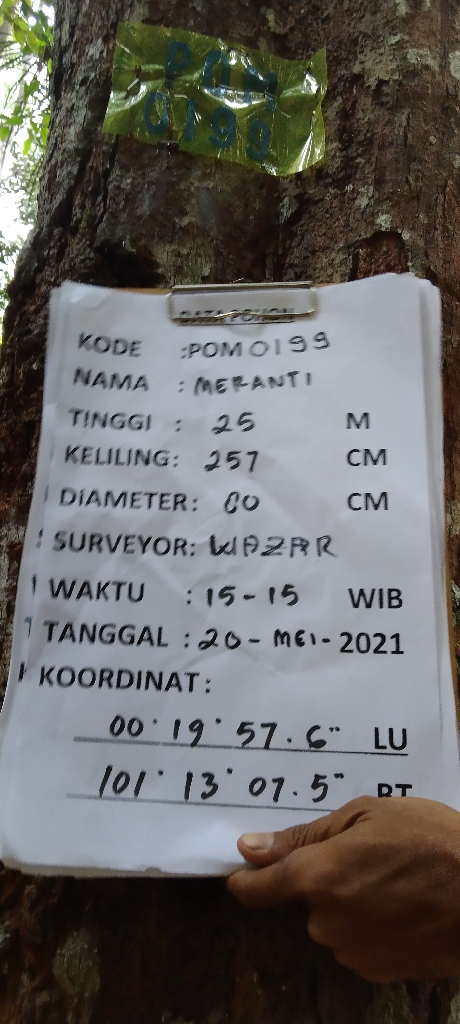 POM
0199
DATA POHON
KODE :POM0199
NAMA : MERANTI
TINGGI : 25 M
KELILING: 257 CM
DIAMETER: 80 CM
SURVEYOR: WAZAR
WAKTU : 15-15 WIB
TANGGAL : 20 - MEI - 2021
KOORDINAT:
00° 19' 57.6" LU
101° 13' 07.5" BT